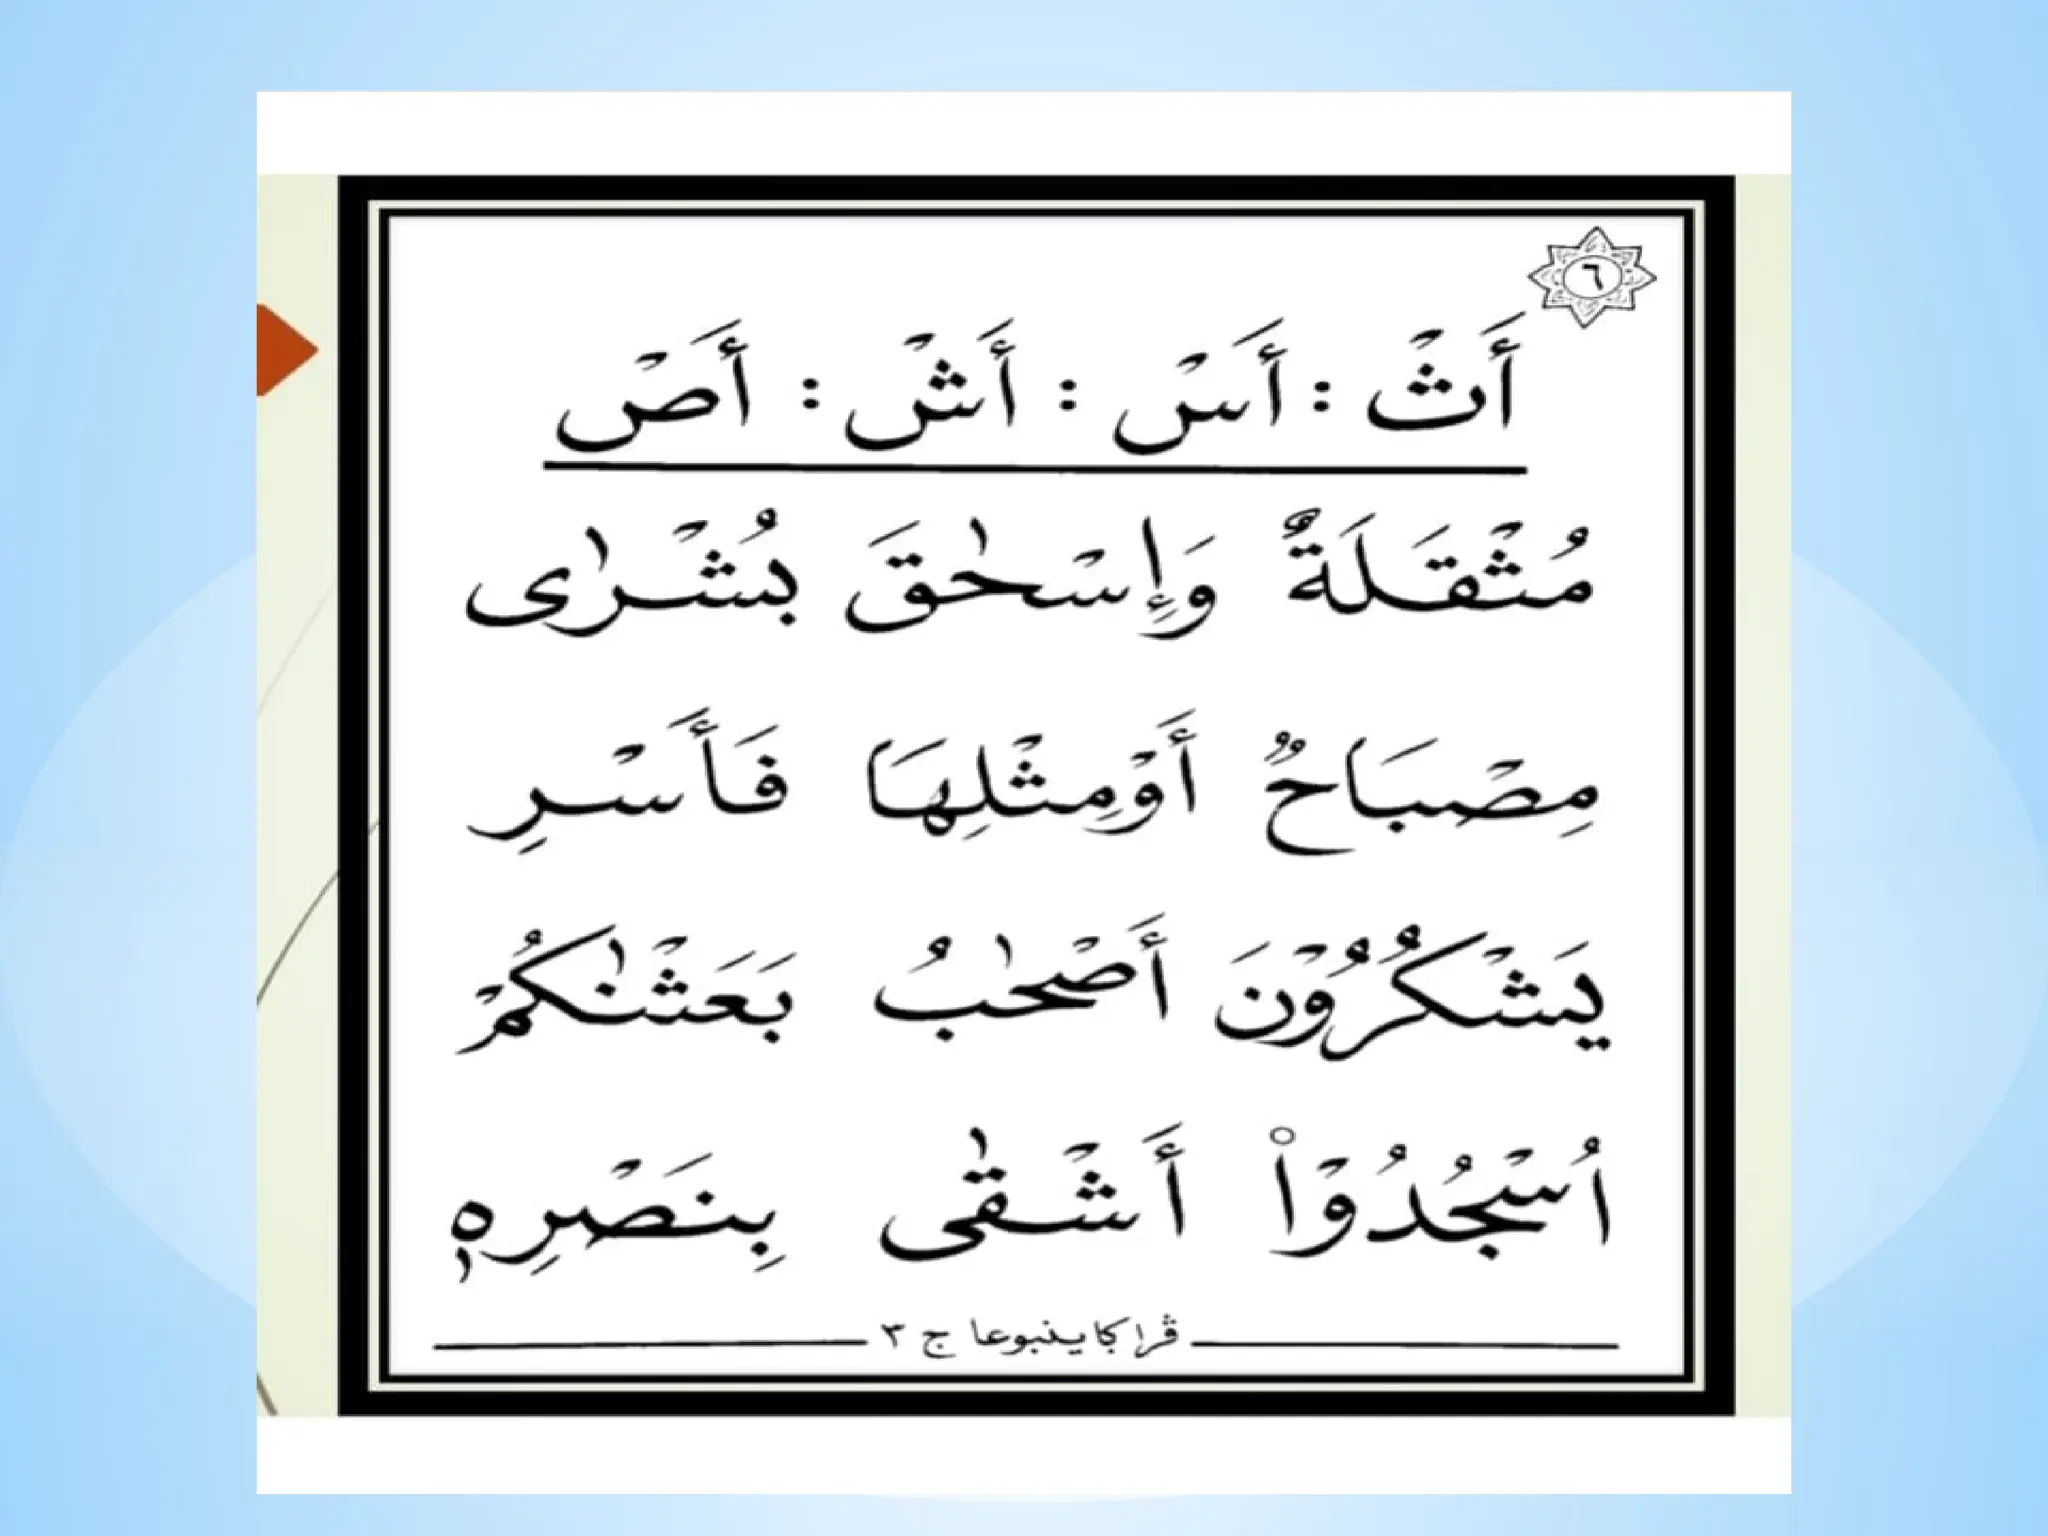 ٦
أَثْ : أَسْ : أَشْ : أَصْ
مُثْقَلَةٌ وَإِسْحٰقَ بُشْرٰى
مِصْبَاحٌ أَوْمِثْلِهَا فَأَسْرِ
يَشْكُرُوْنَ أَصْحٰبُ بَعَثْنٰكُمْ
اُسْجُدُوْا۟ أَشْقٰى بِنَصْرِهٖ
ڤراكاينبوعا ج ٣